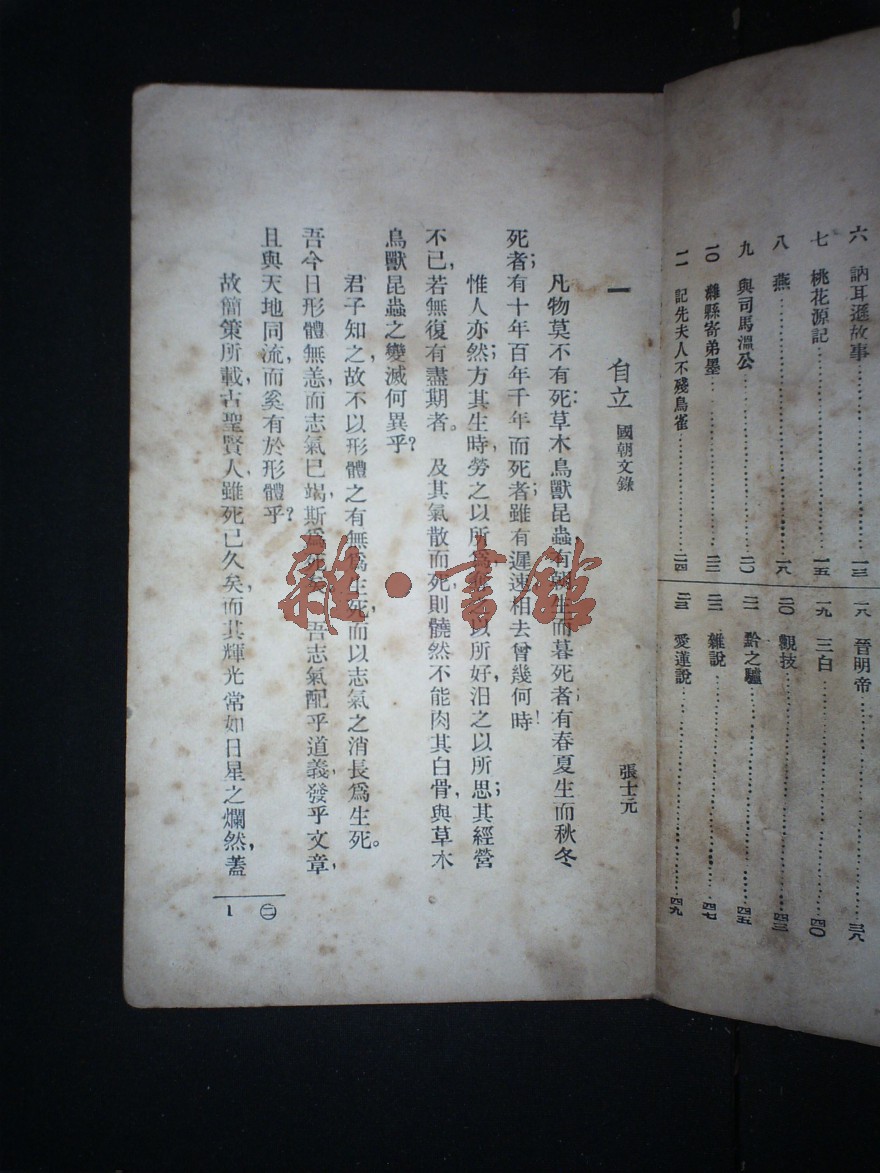 六 訥耳遜故事 一三
七 桃花源記 一五
八 燕 一八
九 與司馬溫公 二〇
一〇 濰縣寄弟墨 二二
一一 記先夫人不殘鳥雀 二四
一八 晉明帝 三八
一九 三白 四〇
二〇 觀技 四三
二一 黔之驢 四五
二二 雜說 四七
二三 愛蓮說 四九
一 自立 國朝文錄 張士元
凡物莫不有死：草木鳥獸昆蟲有朝生而暮死者；有春夏生而秋冬
死者；有十年百年千年而死者；雖有遲速，相去曾幾何時！
惟人亦然，方其生時，勞之以所為，以所好；汨之以所思；其經營
不已，若無復有盡期者。及其氣散而死，則髐然不能肉其白骨，與草木
鳥獸昆蟲之變滅何異乎？
君子知之，故不以形體之有無為生死，而以志氣之消長為生死。
吾今日形體無恙，而志氣已竭，斯為死矣。吾志氣配乎道義，發乎文章，
且與天地同流，而奚有於形體乎？
故簡策所載，古聖賢人，雖死已久矣，而其輝光常如日星之爛然，蓋
㊂
1
雜·書館